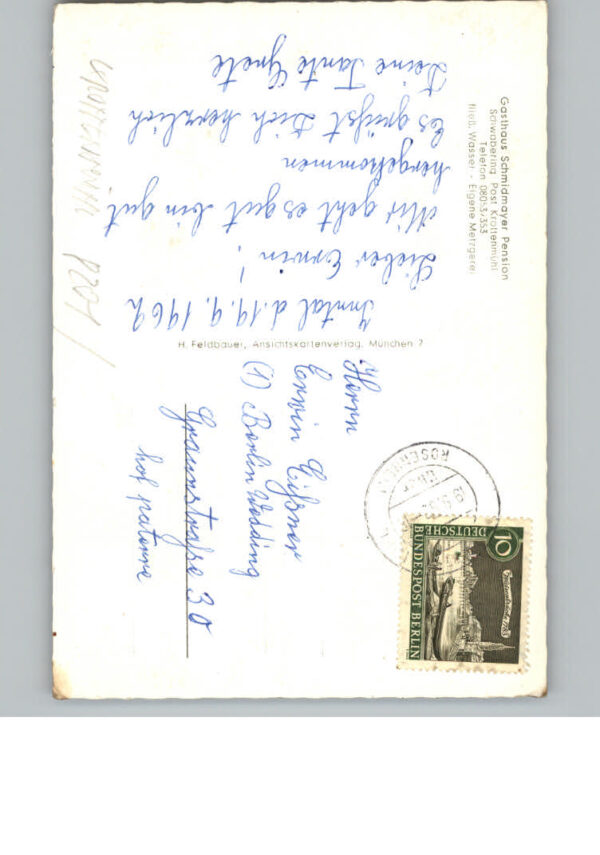 Gasthaus Schmidmayer Pension
Schwabering Post Krottenmühl
Telefon 08053/353
fließ. Wasser - Eigene Metzgerei
Inntal d. 19. 9. 1962
Lieber Erwin!
Mir geht es gut bin gut
hergekommen
Es grüßst Dich herzlich
Deine Tante Grete
H. Feldbauer, Ansichtskartenverlag, München 7
Herrn
Erwin
(1) Berlin Wedding
Graunstraße 30
hof paterre
10
DEUTSCHE
BUNDESPOST BERLIN